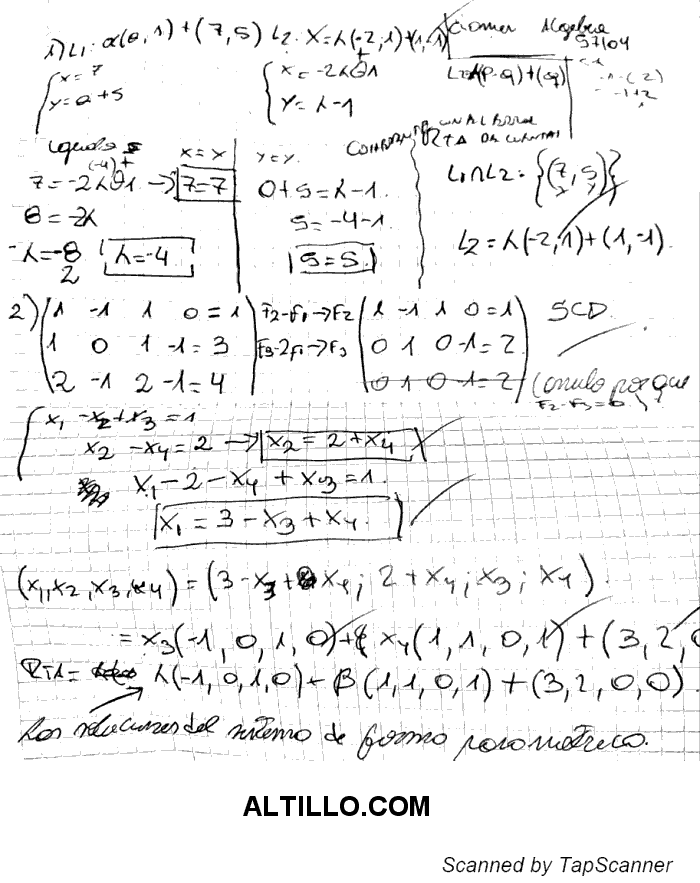 1) L1: α(0,1)+(7,5) L2: X=λ(-2,1)+(1,-1)
Algebra
{x=7
y=α+5
{x=-2λ+1
y=λ-1
L=λ(P-Q)+(Q)
x=x
7=-2λ+1 → 7=7
8=-2λ
-λ=-8/2 λ=-4
y=y.
0+5=λ-1.
5=-4-1.
5=5.
L1∩L2: {(7,5)}
L2=λ(-2,1)+(1,-1).
2) (1 -1 1 0=1
1 0 1 -1=3
2 -1 2 -1=4)
F2-F1→F2
F3-2F1→F3
(1 -1 1 0=1
0 1 0 -1=2
0 1 0 -1=2)
SCD.
(anulo porque
F2-F3=0)
{x1 -x2+x3=1
x2 -x4=2 → x2=2+x4
x1-2-x4+x3=1.
x1=3-x3+x4.
(x1,x2,x3,x4)=(3-x3+x4; 2+x4; x3; x4).
=x3(-1,0,1,0)+x4(1,1,0,1)+(3,2,0
RTA= λ(-1,0,1,0)+β(1,1,0,1)+(3,2,0,0)
Las soluciones del sistema de forma parametrica.
ALTILLO.COM
Scanned by TapScanner